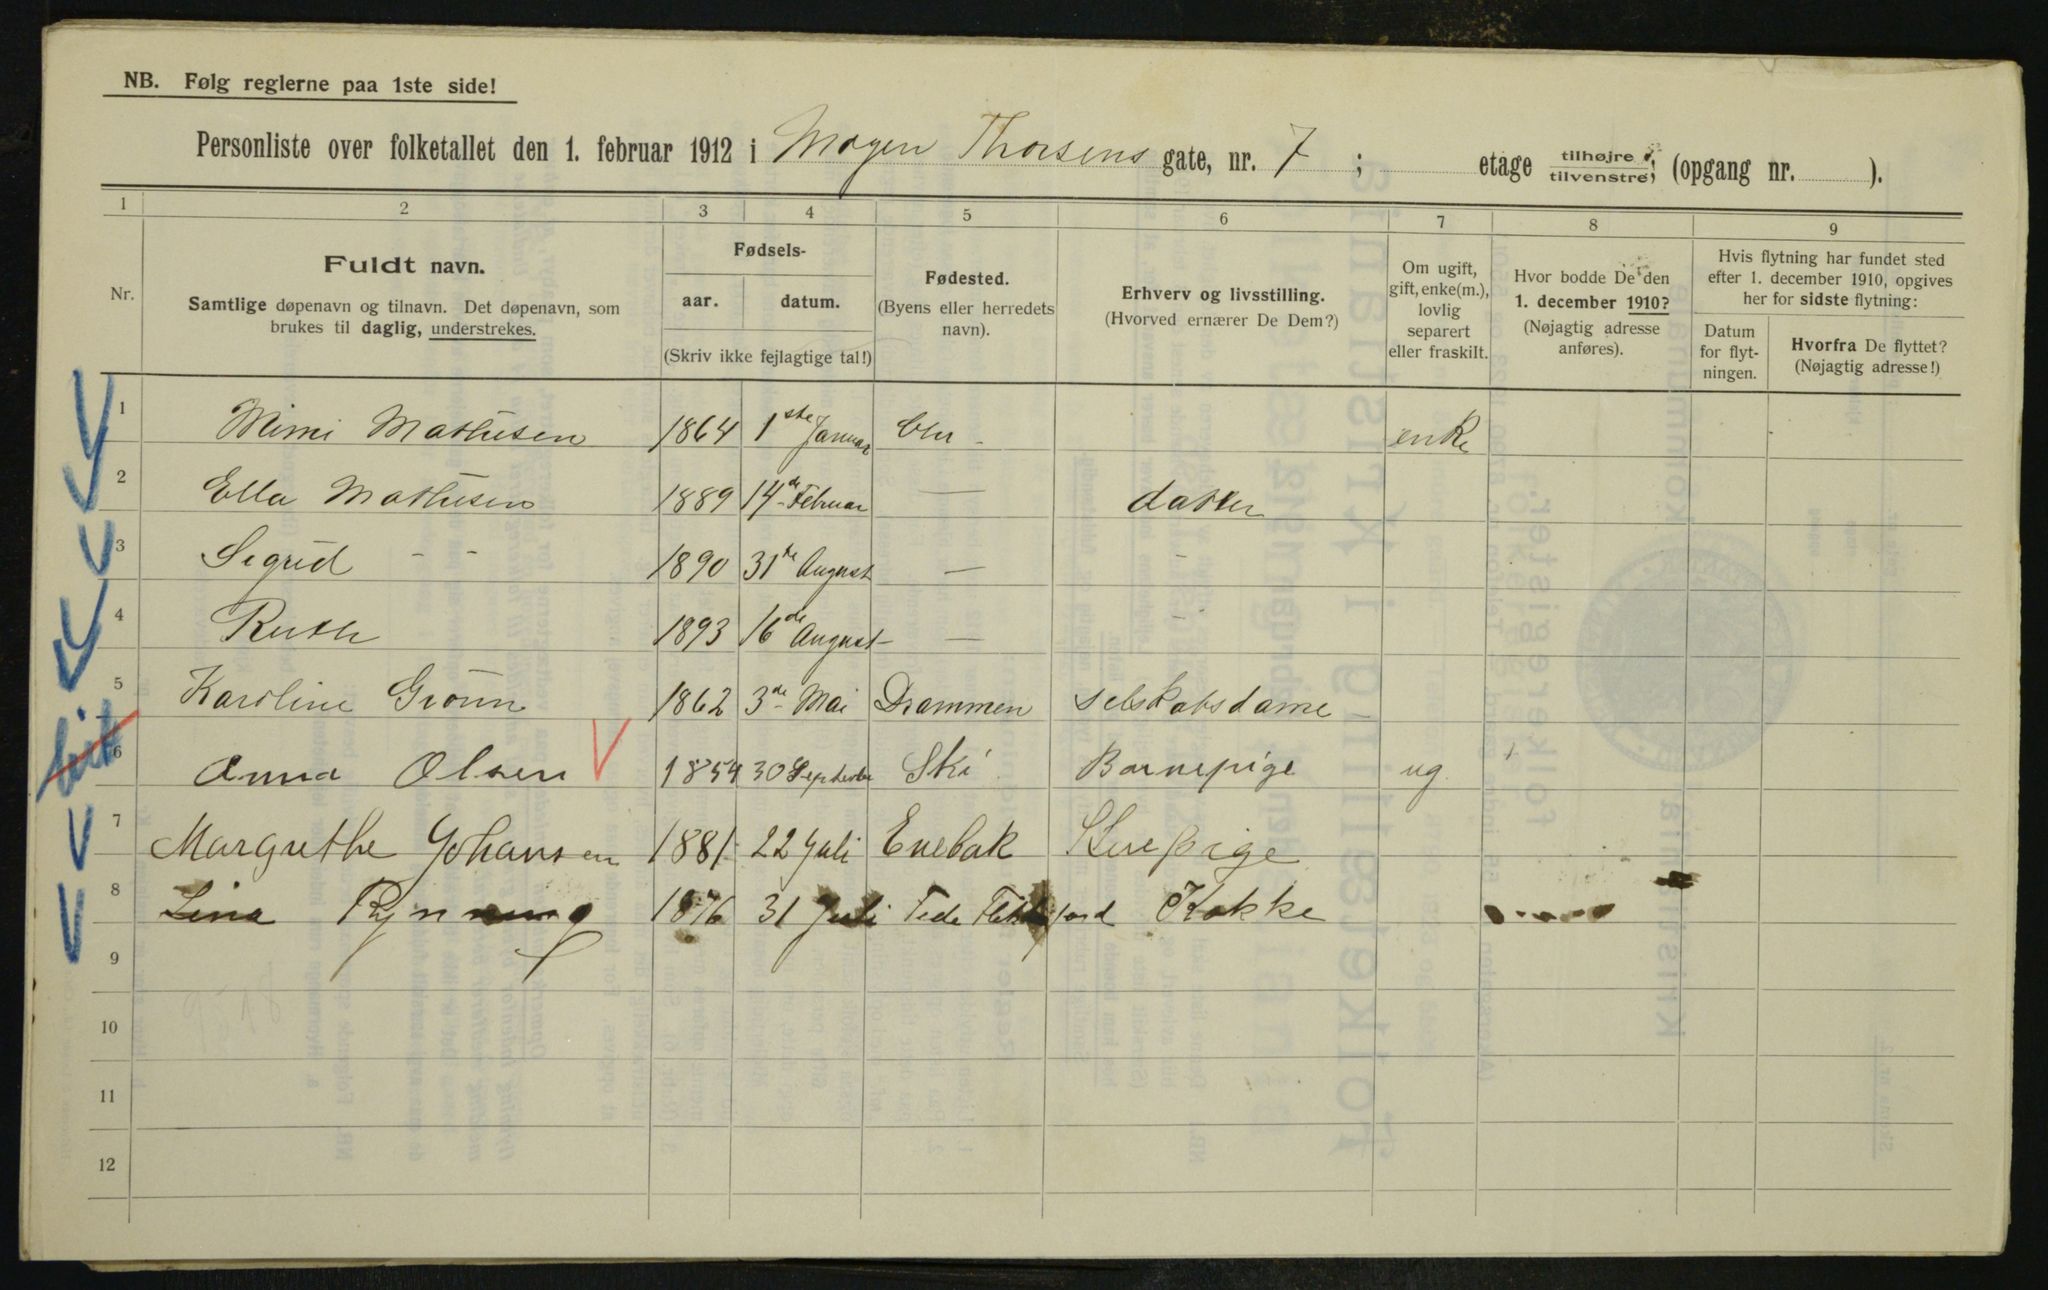 NB. Følg reglerne paa 1ste side!
Personliste over folketallet den 1. februar 1912 i Mogen Thorsens gate, nr. 7 ; etage tilhøjre tilvenstre; (opgang nr. ).
1 2 3 4 5 6 7 8 9
Nr.
Fuldt navn.
Samtlige døpenavn og tilnavn. Det døpenavn, som
brukes til daglig, understrekes.
Fødsels-
aar. datum.
(Skriv ikke fejlagtige tal!)
Fødested.
(Byens eller herredets
navn).
Erhverv og livsstilling.
(Hvorved ernærer De Dem?)
Om ugift,
gift, enke(m.),
lovlig
separert
eller fraskilt.
Hvor bodde De den
1. december 1910?
(Nøjagtig adresse
anføres).
Hvis flytning har fundet sted
efter 1. december 1910, opgives
her for sidste flytning:
Datum
for flyt-
ningen.
Hvorfra De flyttet?
(Nøjagtig adresse!)
1 Mimi Mathisen 1864 1ste Januar Chr - enke
2 Ella Mathisen 1889 14de Februar — datter
3 Sigrid - - 1890 31te August — -
4 Ruth 1893 16de August — -
5 Karoline Grönn 1862 3de Mai Drammen selskabsdame
6 Anna Olsen 1854 30 September Ski Barnepige ug
7 Margrethe Johansen 1881 22 Juli Enebak Stuepige
8 Lina Rynning 1876 31 Juli Fede Flekkefjord Kokke
9
10
11
12